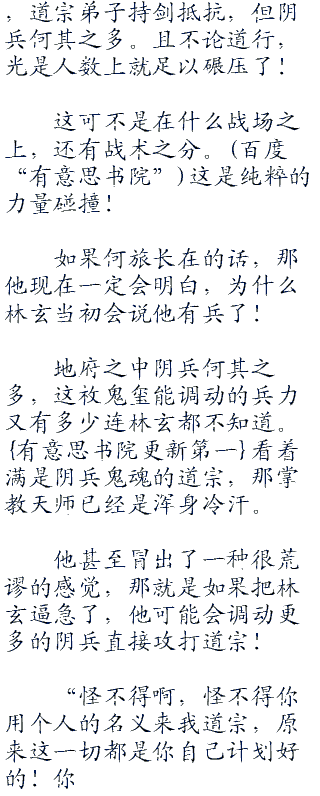 ，道宗弟子持剑抵抗，但阴
兵何其之多。且不论道行，
光是人数上就足以碾压了！
这可不是在什么战场之
上，还有战术之分。(百度
“有意思书院”)这是纯粹的
力量碰撞！
如果何旅长在的话，那
他现在一定会明白，为什么
林玄当初会说他有兵了！
地府之中阴兵何其之
多，这枚鬼玺能调动的兵力
又有多少连林玄都不知道。
{有意思书院更新第一}看着
满是阴兵鬼魂的道宗，那掌
教天师已经是浑身冷汗。
他甚至冒出了一种很荒
谬的感觉，那就是如果把林
玄逼急了，他可能会调动更
多的阴兵直接攻打道宗！
“怪不得啊，怪不得你
用个人的名义来我道宗，原
来这一切都是你自己计划好
的！你